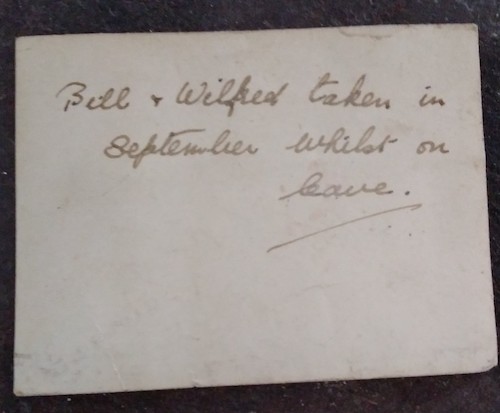 Bill & Wilfred taken in
September whilst on
leave.